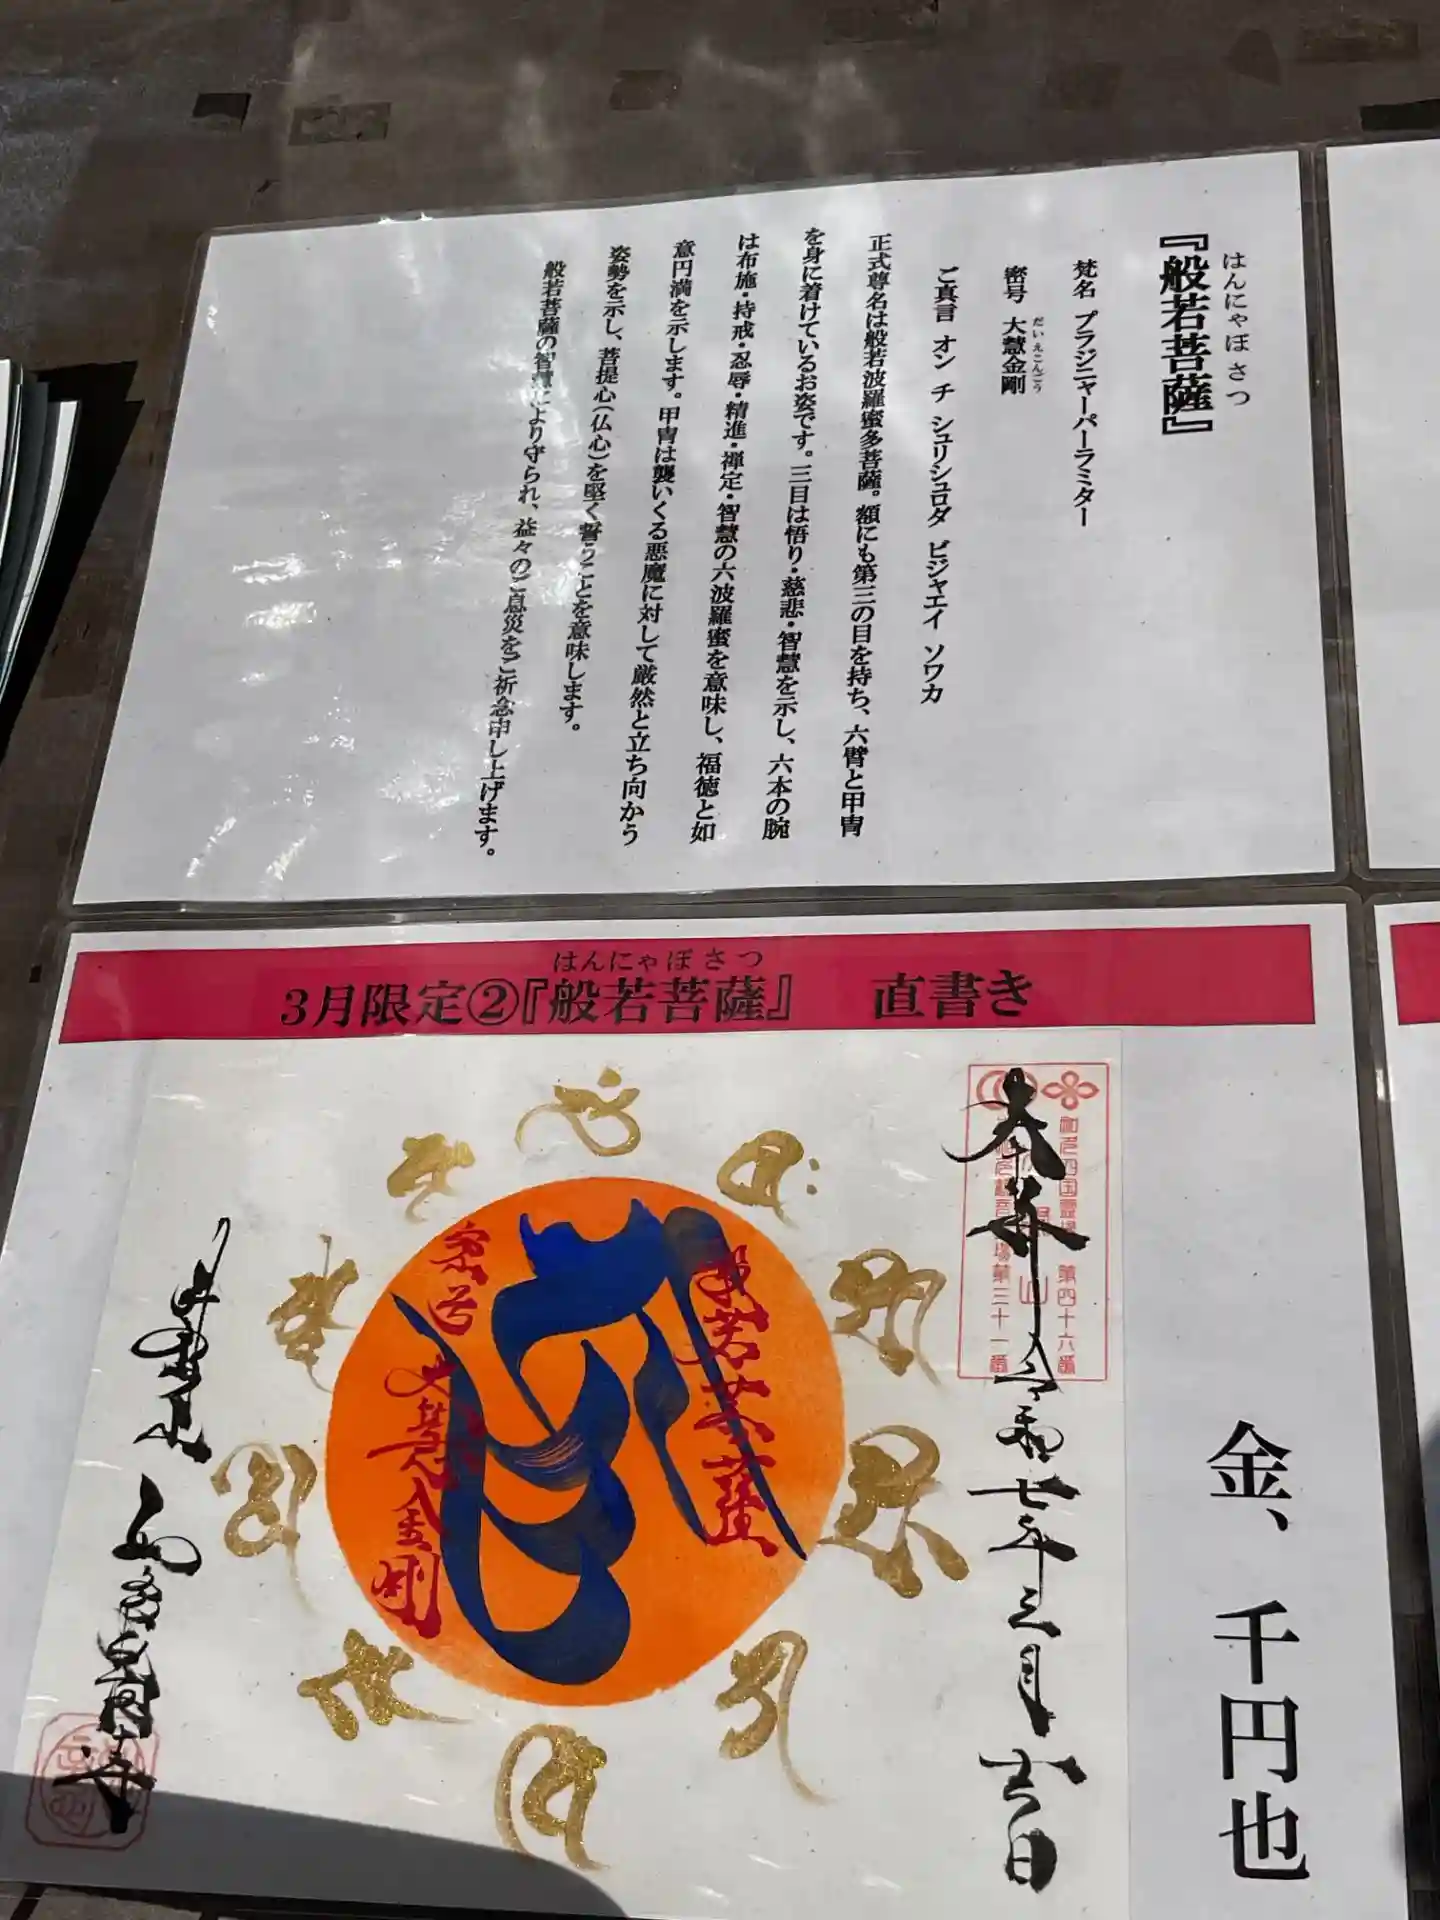 はんにゃぼさつ
『般若菩薩』
梵名 プラジニャーパーラミター
だいえこんごう
密号 大慧金剛
ご真言 オン チ シュリシュロダ ビジャエイ ソワカ
正式尊名は般若波羅蜜多菩薩。額にも第三の目を持ち、六臂と甲冑
を身に着けているお姿です。三目は悟り・慈悲・智慧を示し、六本の腕
は布施・持戒・忍辱・精進・禅定・智慧の六波羅蜜を意味し、福徳と如
意円満を示します。甲冑は襲いくる悪魔に対して厳然と立ち向かう
姿勢を示し、菩提心(仏心)を堅く誓うことを意味します。
般若菩薩の智慧により守られ、益々のご息災をご祈念申し上げます。
はんにゃぼさつ
3月限定②『般若菩薩』 直書き
金、千円也
奉拝 令和七年三月吉日
第四十六番
第三十一番
般若菩薩
密号 大慧金剛